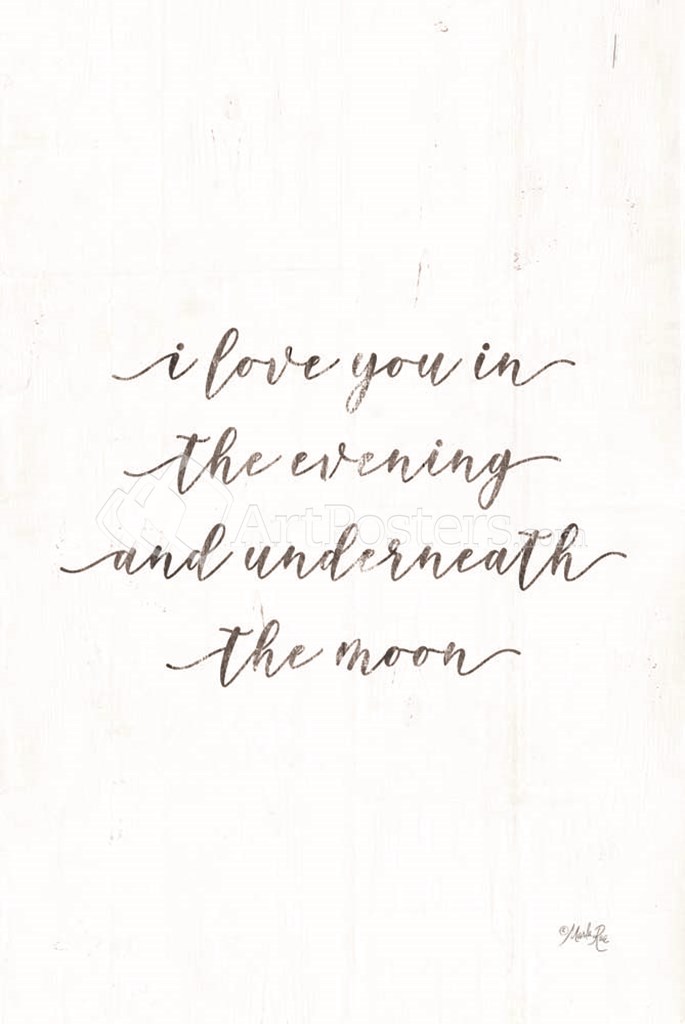 i love you in
the evening
and underneath
the moon
ArtPosters.com
©Marla Rae